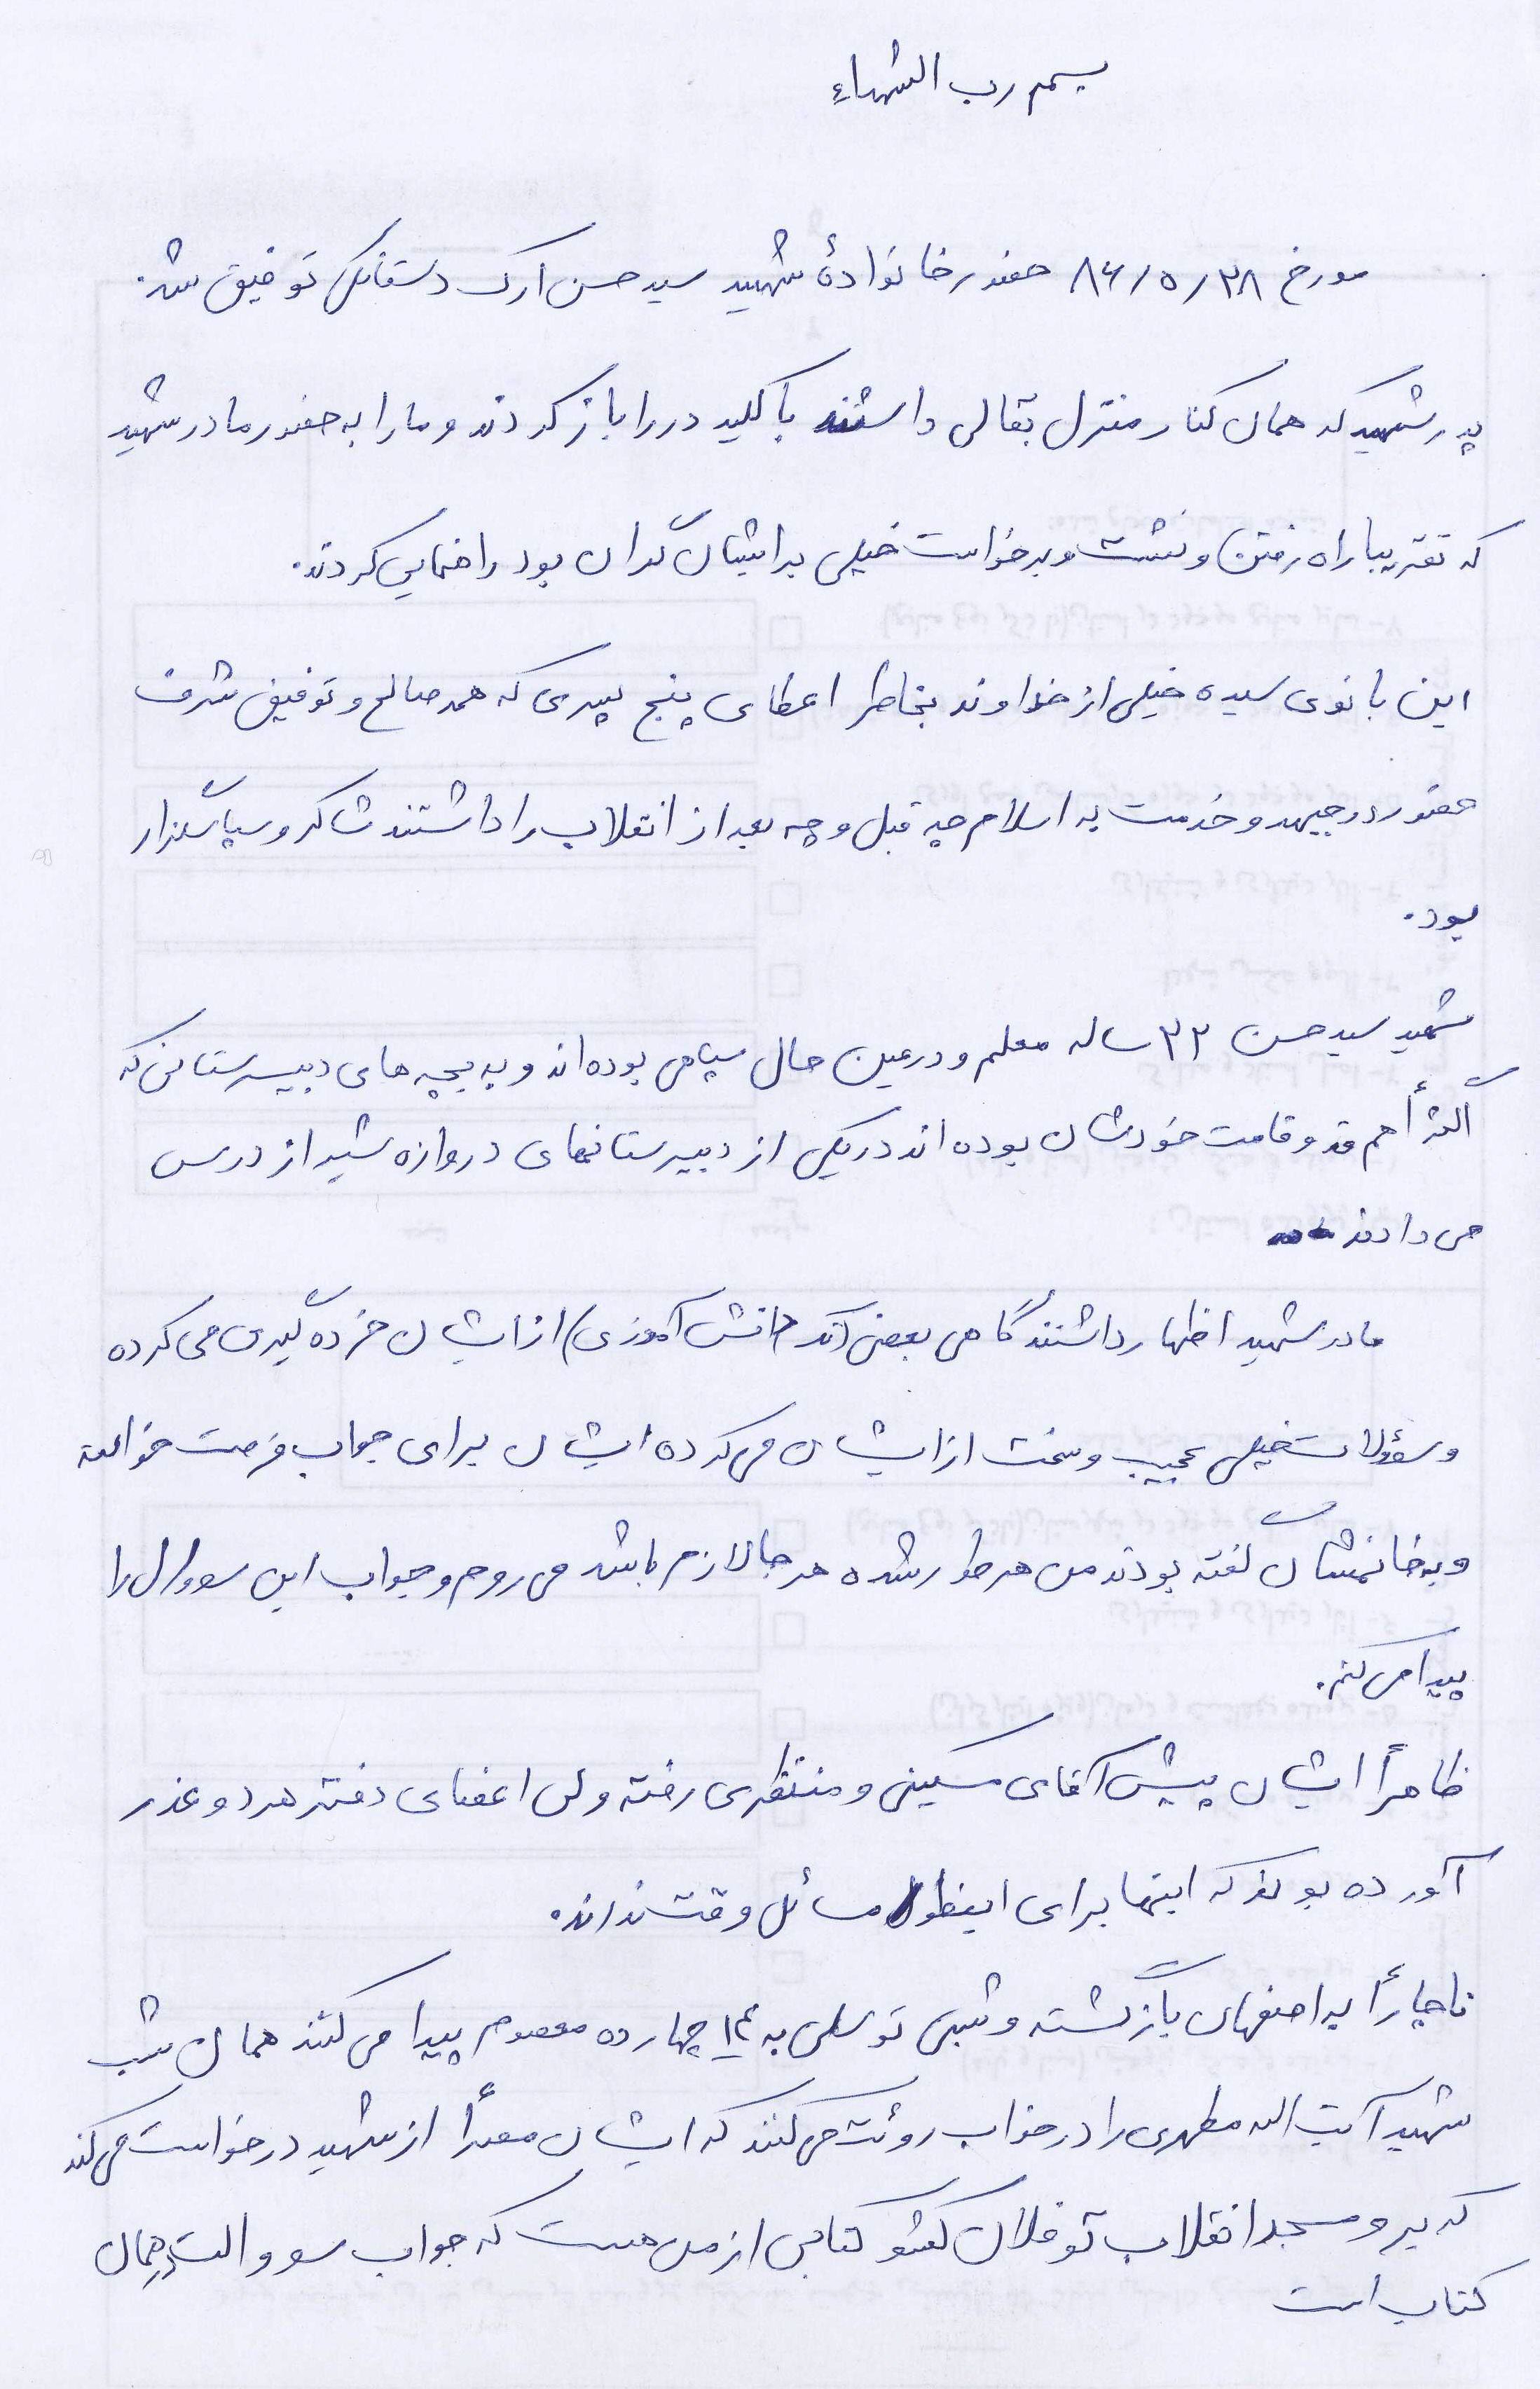 بسم رب الشهداء
مورخ ۸۶/۵/۲۸ حضور خانوادهٔ شهید سید حسن ارک دستفانکل توفیق شد.
پدر شهید که همان کنار منزل بقالی داشتند با کلید در را باز کردند و ما را به حضور مادر شهید
که تقریبا راه رفتن و نشست و برخواست خیلی برایشان گران بود راهنمایی کردند.
این بانوی سیده خیلی از خداوند بخاطر اعطای پنج پسری که همه صالح و توفیق شرف
حضور در جبهه و خدمت به اسلام چه قبل و چه بعد از انقلاب را داشتند شاکر و سپاسگزار
بود.
شهید سید حسن ۲۲ ساله معلم و در عین حال سپاهی بوده اند و به بچه های دبیرستانی که
اکثراً هم قد و قامت خودشان بوده اند در یکی از دبیرستانهای دروازه شیراز درس
می دادند
مادر شهید اظهار داشتند گاهی بعضی (دانش آموزی) از ایشان خرده گیری می کرده
و سؤولات خیلی عجیب و سخت از ایشان می کرده ایشان برای جواب فرصت خواسته
و به خانمشان گفته بودند من هر طور شده هر جا لازم باشد می روم و جواب این سووال را
پیدا می کنم.
ظاهراً ایشان پیش آقای مسکینی و منتظری رفته ولی اعضای دفتر هر دو عذر
آورده بودند که اینها برای اینطور مسائل وقت ندارند.
ناچاراً به اصفهان بازگشته و شبی توسلی به ۱۴ چهارده معصوم پیدا می کنند همان شب
شهید آیت الله مطهری را در خواب روئت می کنند که ایشان مصراً از شهید درخواست می کند
که برو مسجد انقلاب تو فلان کشو کتابی از من هست که جواب سووالت در همان
کتاب است